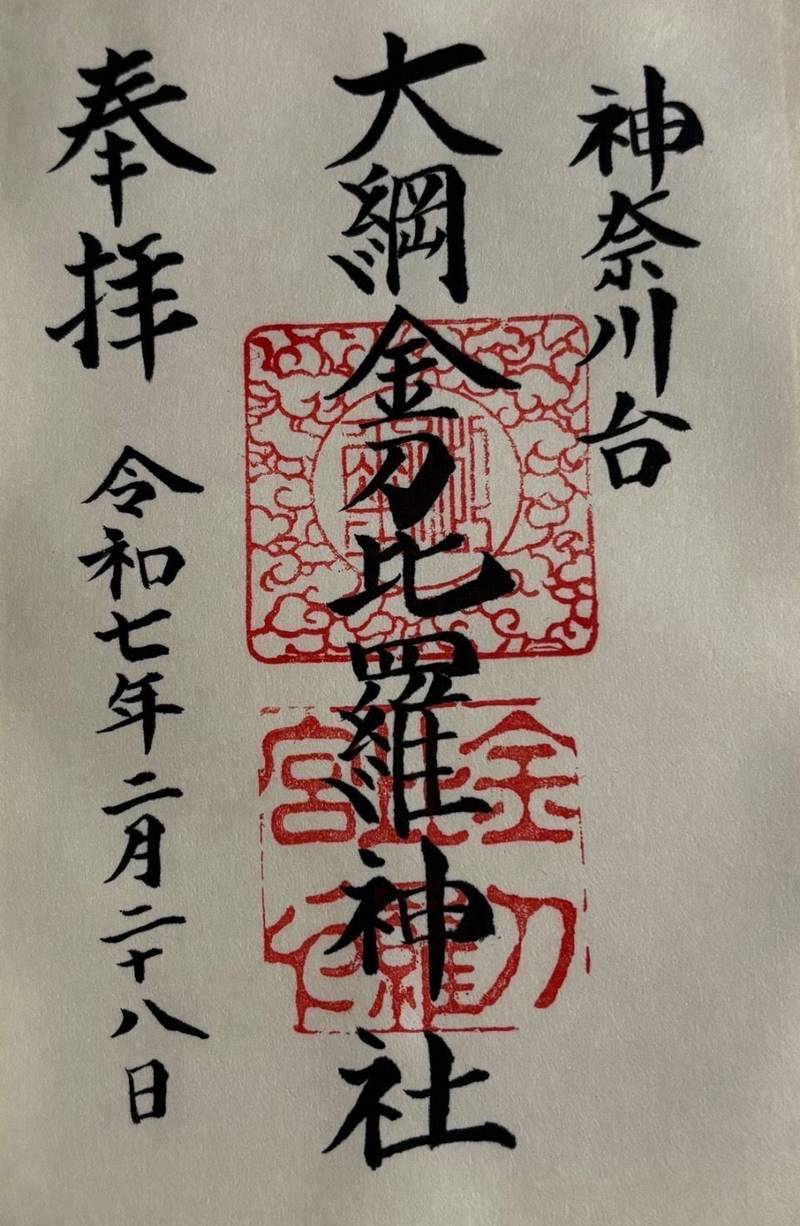 神奈川台
大綱金刀比羅神社
奉拝 令和七年二月二十八日